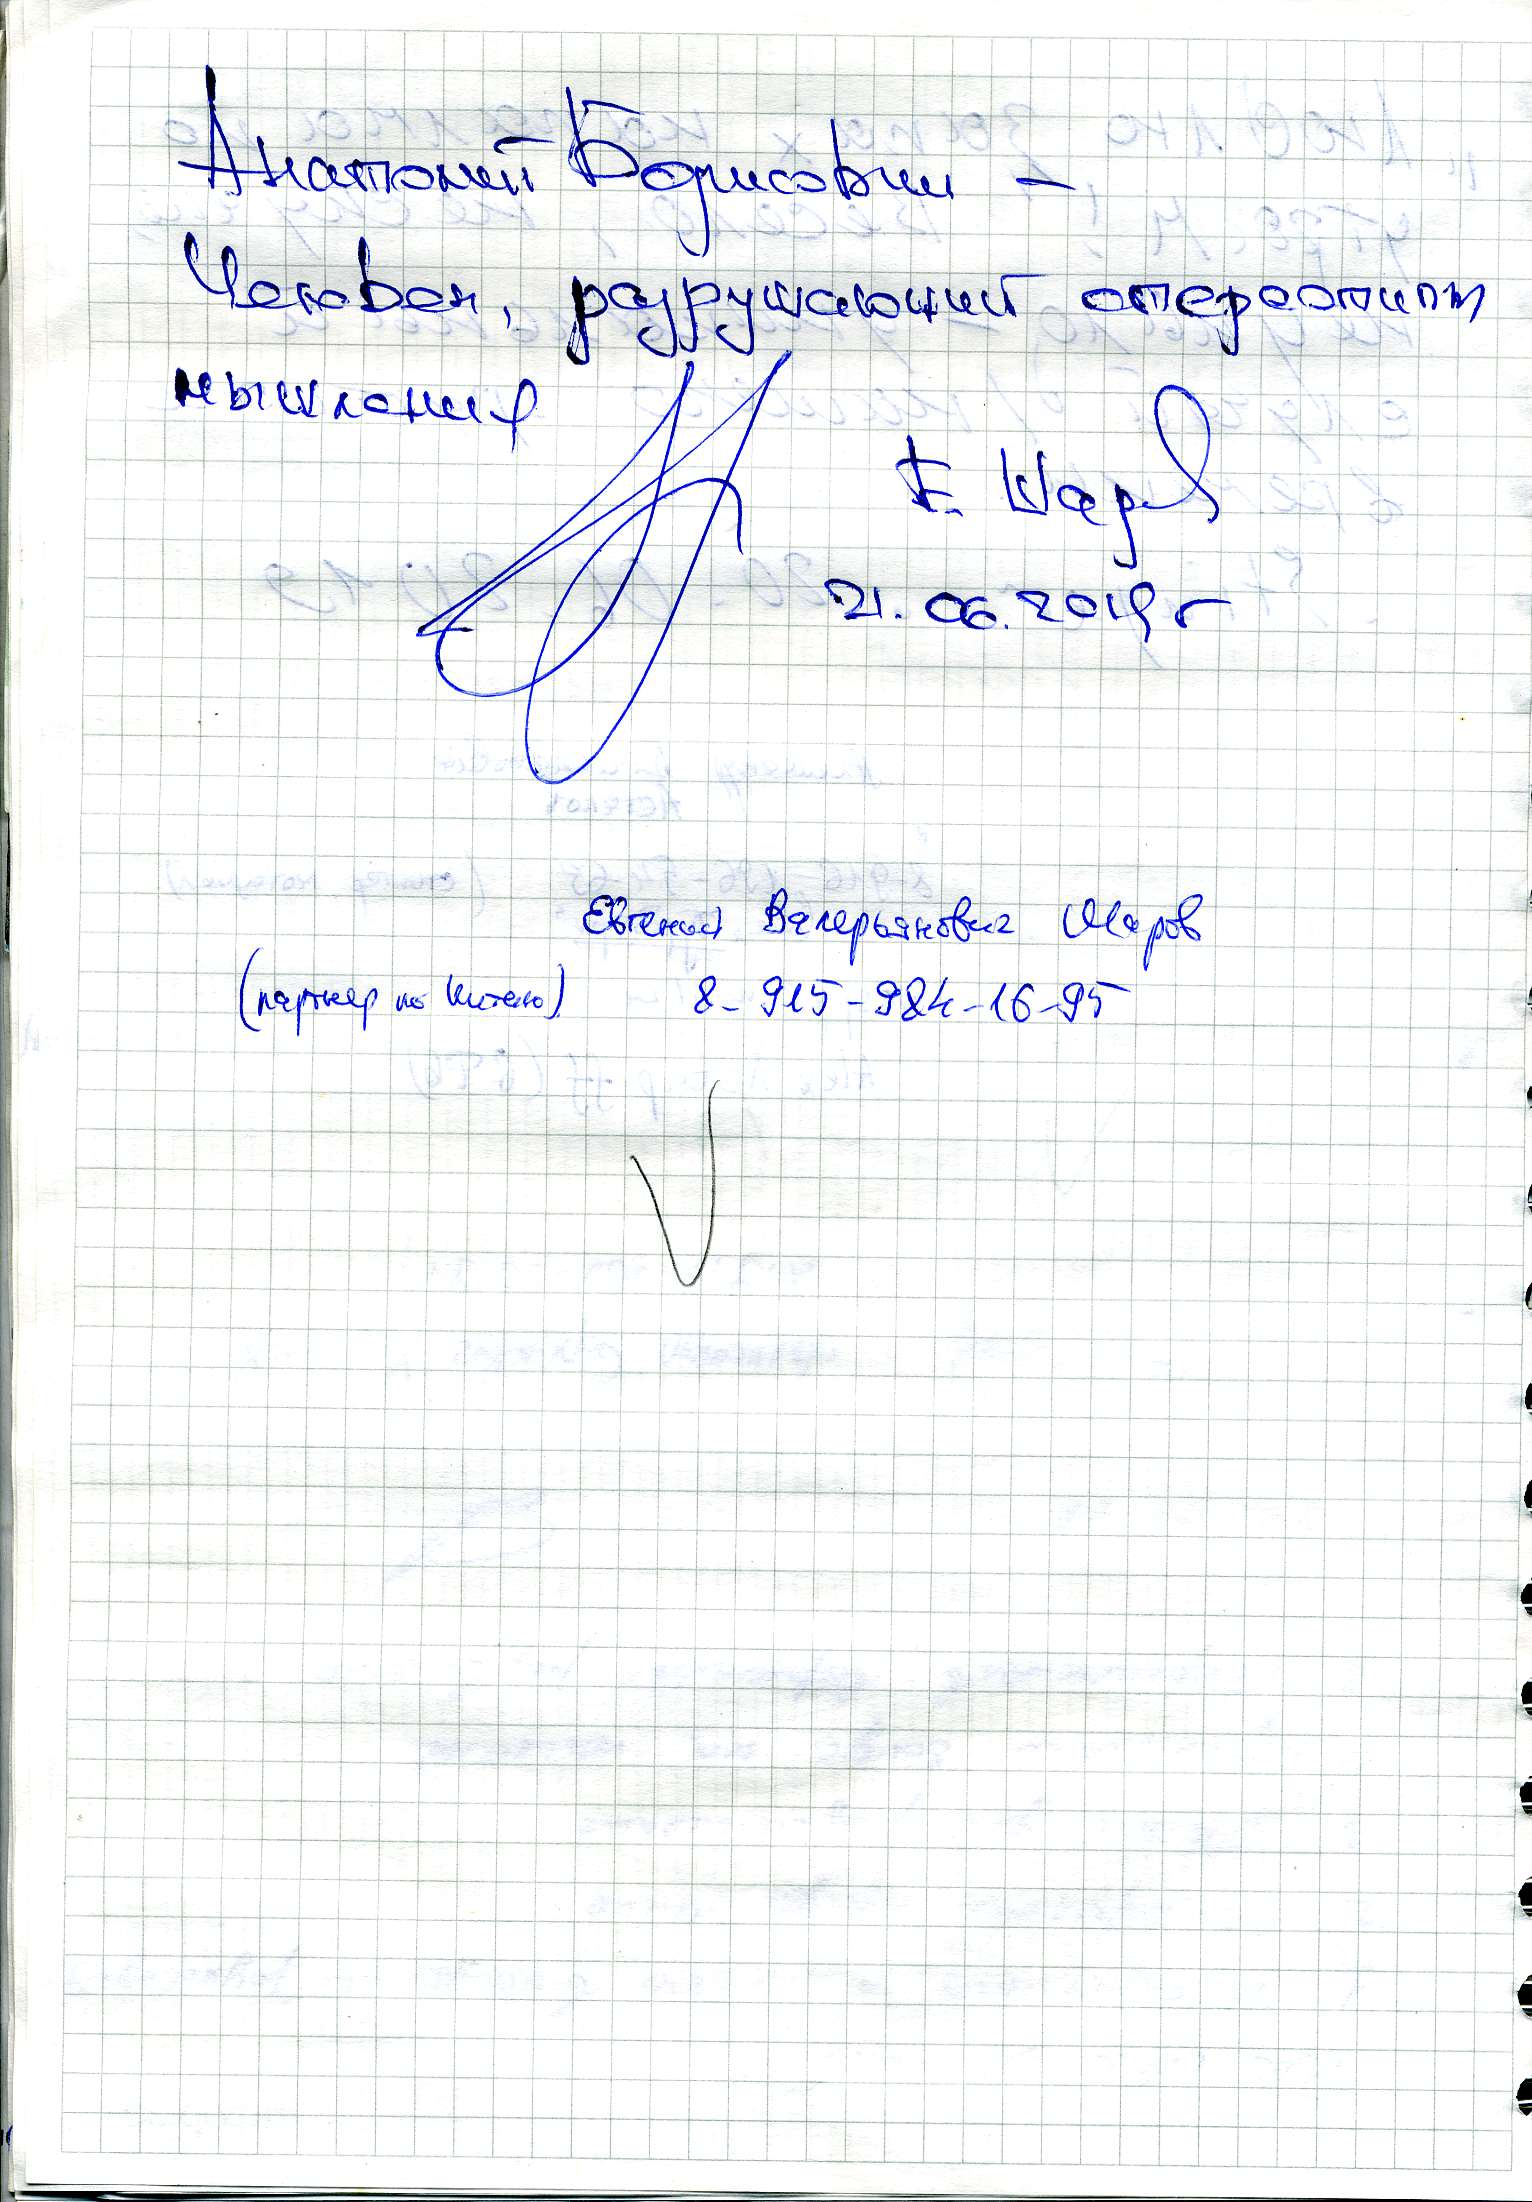 Анатолий Борисович –
Человек, разрушающий стереотипы
мышления
Е. Шаров
21.06.2019г
Евгений Валерьянович Шаров
(партнер по Китаю) 8-915-984-16-95